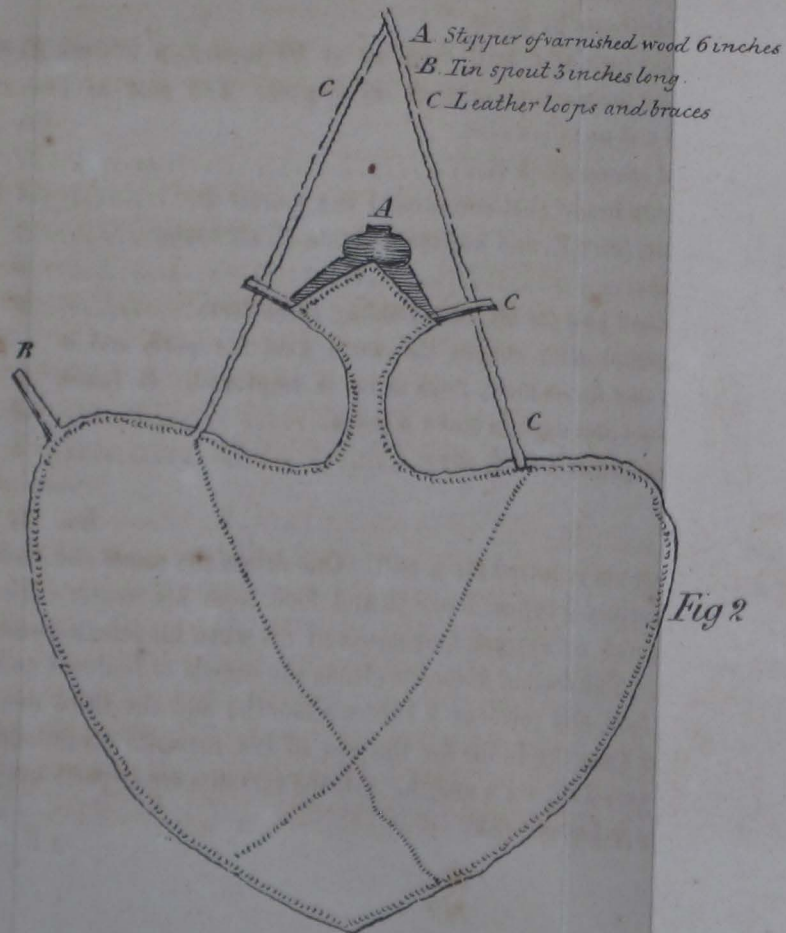 A. Stopper of varnished wood 6 inches
B. Tin spout 3 inches long.
C Leather loops and braces
C
A
C
B
C
Fig 2